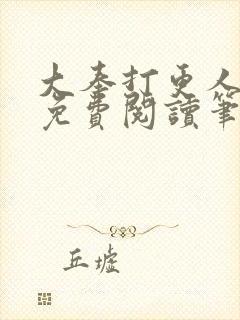 大秦打更人
免費閱讀筆
丘墟